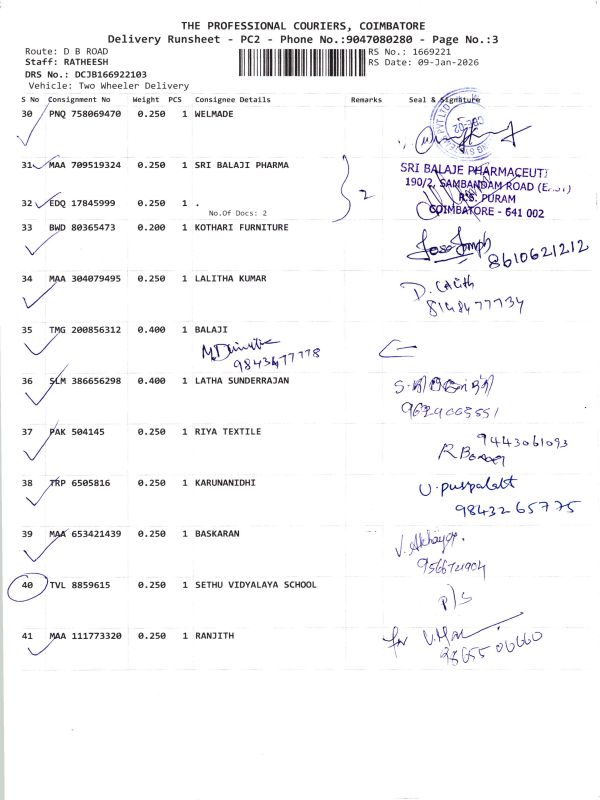 THE PROFESSIONAL COURIERS, COIMBATORE
Delivery Runsheet - PC2 - Phone No.:9047080280 - Page No.:3
Route: D B ROAD
RS No.: 1669221
Staff: RATHEESH
RS Date: 09-Jan-2026
DRS No.: DCJB166922103
Vehicle: Two Wheeler Delivery
S No Consignment No Weight PCS Consignee Details Remarks Seal & Signature
30 PNQ 758069470 0.250 1 WELMADE
31 MAA 709519324 0.250 1 SRI BALAJI PHARMA 2
SRI BALAJE PHARMACEUTI
190/2, SAMBANDAM ROAD
R.S. PURAM
COIMBATORE - 641 002
32 EDQ 17845999 0.250 1 .
No.Of Docs: 2
33 BWD 80365473 0.200 1 KOTHARI FURNITURE
8610621212
34 MAA 304079495 0.250 1 LALITHA KUMAR
D. Lalith
8148477734
35 TMG 200856312 0.400 1 BALAJI
9843477778
36 SLM 386656298 0.400 1 LATHA SUNDERRAJAN
37 PAK 504145 0.250 1 RIYA TEXTILE
9443061093
38 TRP 6505816 0.250 1 KARUNANIDHI
9843265775
39 MAA 653421439 0.250 1 BASKARAN
40 TVL 8859615 0.250 1 SETHU VIDYALAYA SCHOOL
P/S
41 MAA 111773320 0.250 1 RANJITH
for